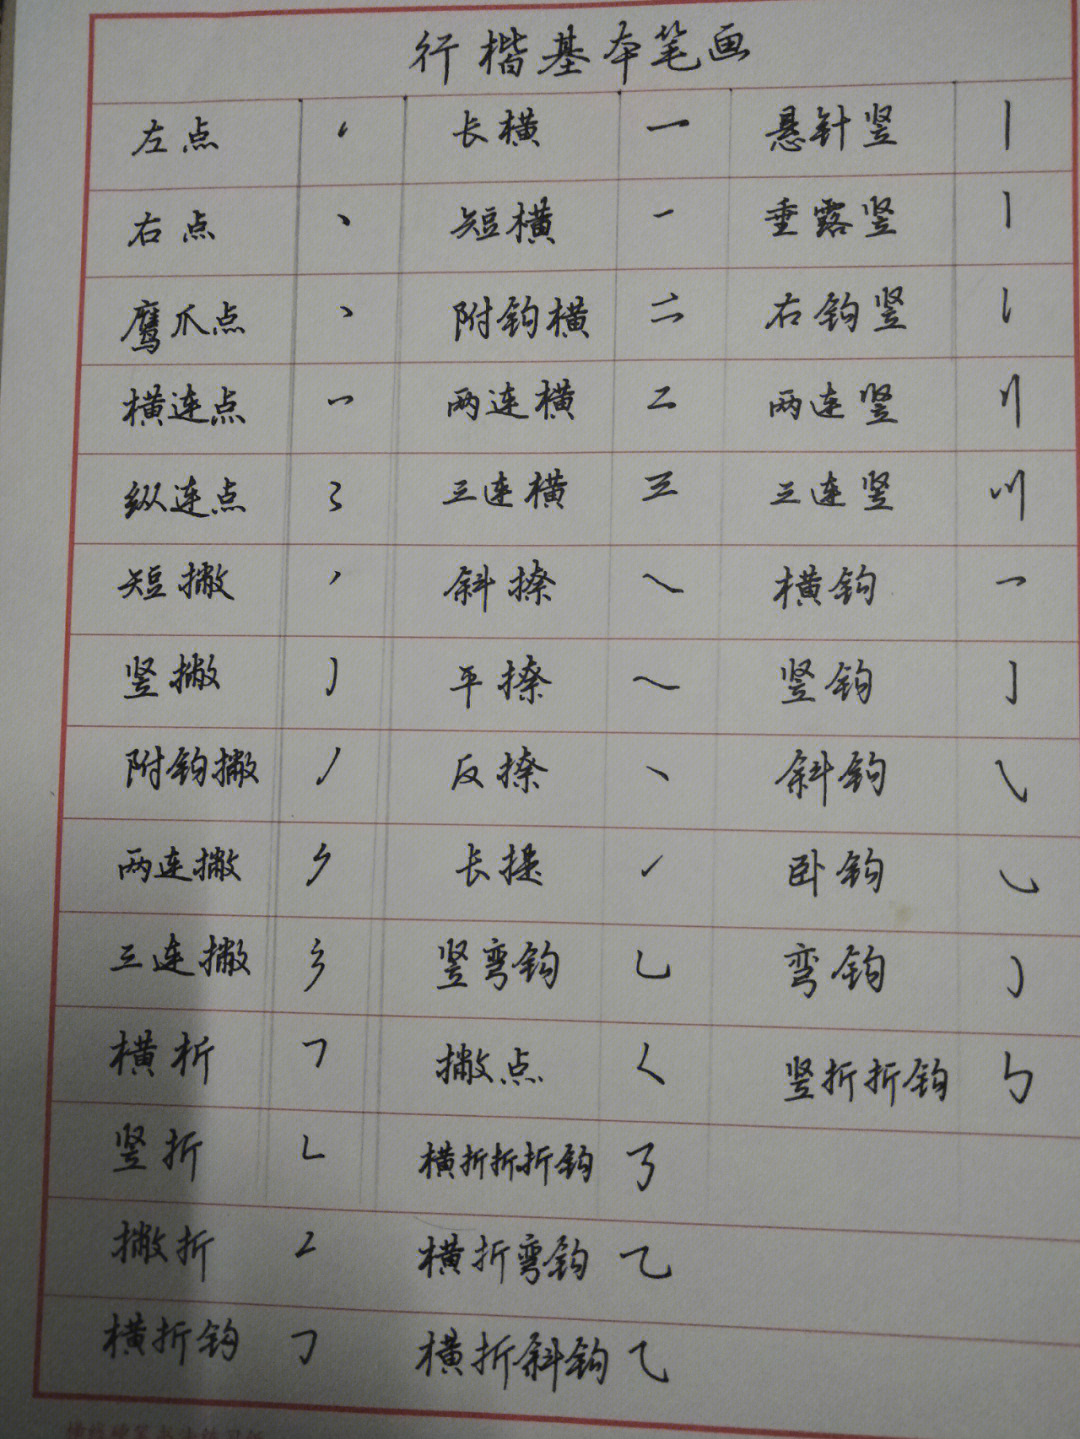 行楷基本笔画
左点 ㇒ 长横 一 悬针竖 丨
右点 丶 短横 一 垂露竖 丨
鹰爪点 丶 附钩横 二 右钩竖 丨
横连点 两连横 二 两连竖
纵连点 三连横 三 三连竖
短撇 ㇒ 斜捺 ㇏ 横钩 ㇖
竖撇 ㇓ 平捺 ㇏ 竖钩 亅
附钩撇 丿 反捺 ㇔ 斜钩 ㇂
两连撇 长提 ㇀ 卧钩 ㇃
三连撇 彡 竖弯钩 乚 弯钩 ㇁
横折 ㇕ 撇点 ㇛ 竖折折钩 ㇉
竖折 ㇗ 横折折折钩 ㇡
撇折 ㇜ 横折弯钩 ㇈
横折钩 ㇆ 横折斜钩 ⺄